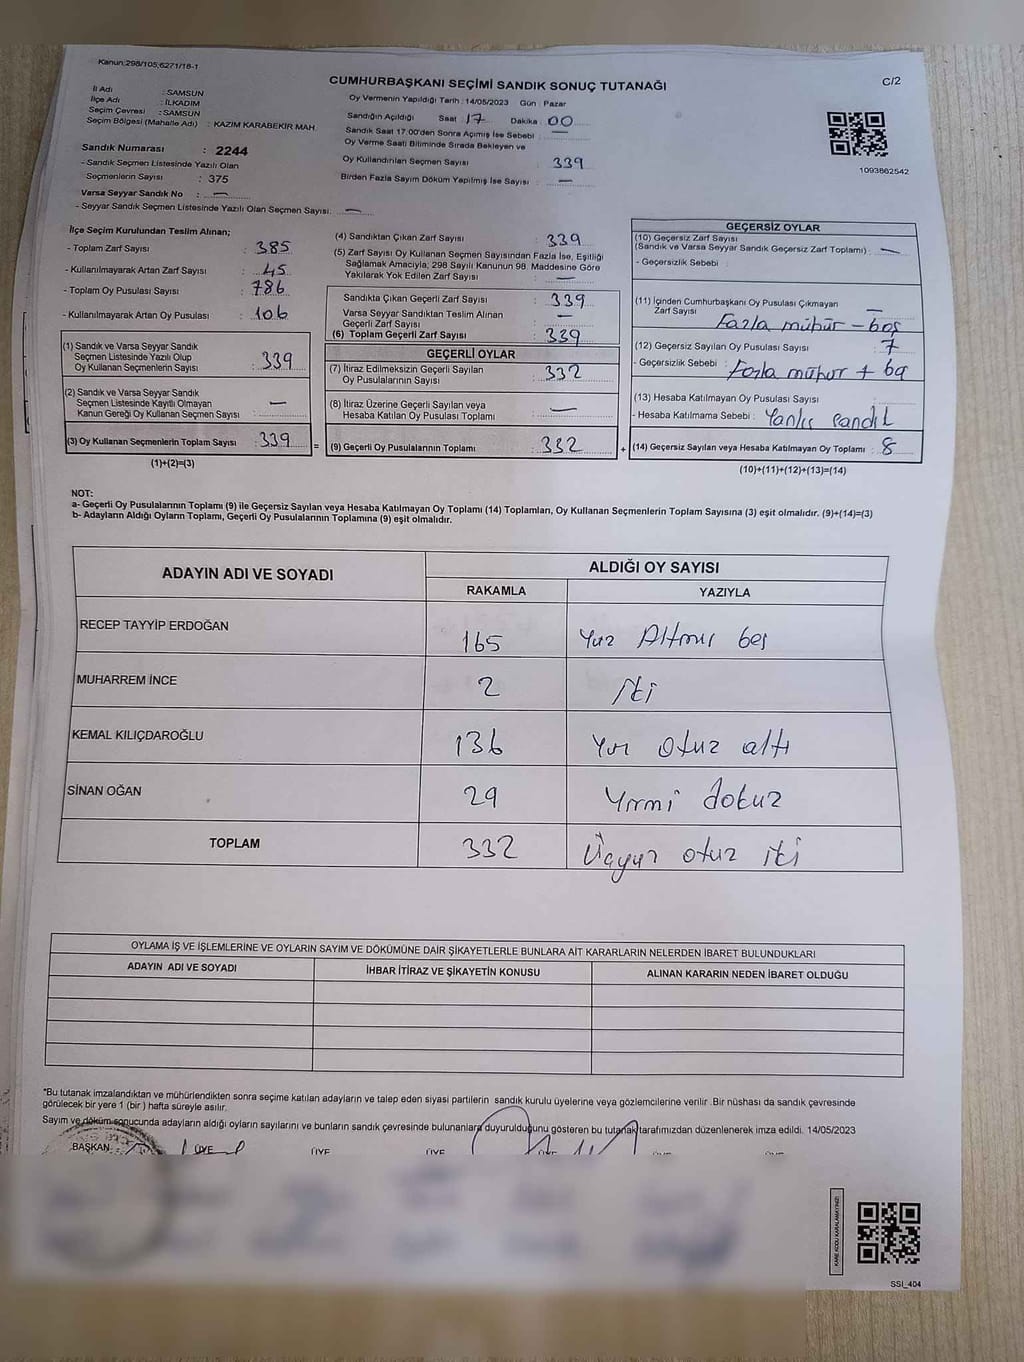 Kanun:298/105;6271/18-1
CUMHURBAŞKANI SEÇİMİ SANDIK SONUÇ TUTANAĞI
C/2
İl Adı : SAMSUN
İlçe Adı : İLKADIM
Seçim Çevresi : SAMSUN
Seçim Bölgesi (Mahalle Adı) : KAZIM KARABEKİR MAH.
Sandık Numarası : 2244
- Sandık Seçmen Listesinde Yazılı Olan
Seçmenlerin Sayısı : 375
Varsa Seyyar Sandık No : —
- Seyyar Sandık Seçmen Listesinde Yazılı Olan Seçmen Sayısı: —
Oy Vermenin Yapıldığı Tarih : 14/05/2023 Gün : Pazar
Sandığın Açıldığı Saat : 17 Dakika : 00
Sandık Saat 17:00'den Sonra Açımış İse Sebebi : —
Oy Verme Saati Bitiminde Sırada Bekleyen ve
Oy Kullandırılan Seçmen Sayısı : 339
Birden Fazla Sayım Döküm Yapılmış İse Sayısı : —
1093862542
İlçe Seçim Kurulundan Teslim Alınan;
- Toplam Zarf Sayısı : 385
- Kullanılmayarak Artan Zarf Sayısı : 45
- Toplam Oy Pusulası Sayısı : 786
- Kullanılmayarak Artan Oy Pusulası : 106
(1) Sandık ve Varsa Seyyar Sandık
Seçmen Listesinde Yazılı Olup
Oy Kullanan Seçmenlerin Sayısı : 339
(2) Sandık ve Varsa Seyyar Sandık
Seçmen Listesinde Kayıtlı Olmayan
Kanun Gereği Oy Kullanan Seçmen Sayısı : —
(3) Oy Kullanan Seçmenlerin Toplam Sayısı : 339 =
(1)+(2)=(3)
(4) Sandıktan Çıkan Zarf Sayısı : 339
(5) Zarf Sayısı Oy Kullanan Seçmen Sayısından Fazla İse, Eşitliği
Sağlamak Amacıyla; 298 Sayılı Kanunun 98. Maddesine Göre
Yakılarak Yok Edilen Zarf Sayısı : —
Sandıkta Çıkan Geçerli Zarf Sayısı : 339
Varsa Seyyar Sandıktan Teslim Alınan
Geçerli Zarf Sayısı : —
(6) Toplam Geçerli Zarf Sayısı : 339
GEÇERLİ OYLAR
(7) İtiraz Edilmeksizin Geçerli Sayılan
Oy Pusulalarının Sayısı : 332
(8) İtiraz Üzerine Geçerli Sayılan veya
Hesaba Katılan Oy Pusulası Toplamı : —
(9) Geçerli Oy Pusulalarının Toplamı : 332 +
GEÇERSİZ OYLAR
(10) Geçersiz Zarf Sayısı
(Sandık ve Varsa Seyyar Sandık Geçersiz Zarf Toplamı) : —
- Geçersizlik Sebebi :
(11) İçinden Cumhurbaşkanı Oy Pusulası Çıkmayan
Zarf Sayısı : —
Fazla mühür - boş
(12) Geçersiz Sayılan Oy Pusulası Sayısı : 7
- Geçersizlik Sebebi : Fazla mühür +
(13) Hesaba Katılmayan Oy Pusulası Sayısı :
- Hesaba Katılmama Sebebi : Yanlış sandık
(14) Geçersiz Sayılan veya Hesaba Katılmayan Oy Toplamı : 8
(10)+(11)+(12)+(13)=(14)
NOT:
a- Geçerli Oy Pusulalarının Toplamı (9) ile Geçersiz Sayılan veya Hesaba Katılmayan Oy Toplamı (14) Toplamları, Oy Kullanan Seçmenlerin Toplam Sayısına (3) eşit olmalıdır. (9)+(14)=(3)
b- Adayların Aldığı Oyların Toplamı, Geçerli Oy Pusulalarının Toplamına (9) eşit olmalıdır.
ADAYIN ADI VE SOYADI ALDIĞI OY SAYISI
RAKAMLA YAZIYLA
RECEP TAYYİP ERDOĞAN 165 Yüz Altmış beş
MUHARREM İNCE 2 iki
KEMAL KILIÇDAROĞLU 136 Yüz otuz altı
SİNAN OĞAN 29 Yirmi dokuz
TOPLAM 332 Üçyüz otuz iki
OYLAMA İŞ VE İŞLEMLERİNE VE OYLARIN SAYIM VE DÖKÜMÜNE DAİR ŞİKAYETLERLE BUNLARA AİT KARARLARIN NELERDEN İBARET BULUNDUKLARI
ADAYIN ADI VE SOYADI İHBAR İTİRAZ VE ŞİKAYETİN KONUSU ALINAN KARARIN NEDEN İBARET OLDUĞU
*Bu tutanak imzalandıktan ve mühürlendikten sonra seçime katılan adayların ve talep eden siyasi partilerin sandık kurulu üyelerine veya gözlemcilerine verilir .Bir nüshası da sandık çevresinde
görülecek bir yere 1 (bir ) hafta süreyle asılır.
Sayım ve döküm sonucunda adayların aldığı oyların sayılarını ve bunların sandık çevresinde bulunanlara duyurulduğunu gösteren bu tutanak tarafımızdan düzenlenerek imza edildi. 14/05/2023
BAŞKAN ÜYE ÜYE ÜYE ÜYE ÜYE ÜYE
KARE KODU KARALAMAYINIZ!
SSI_404